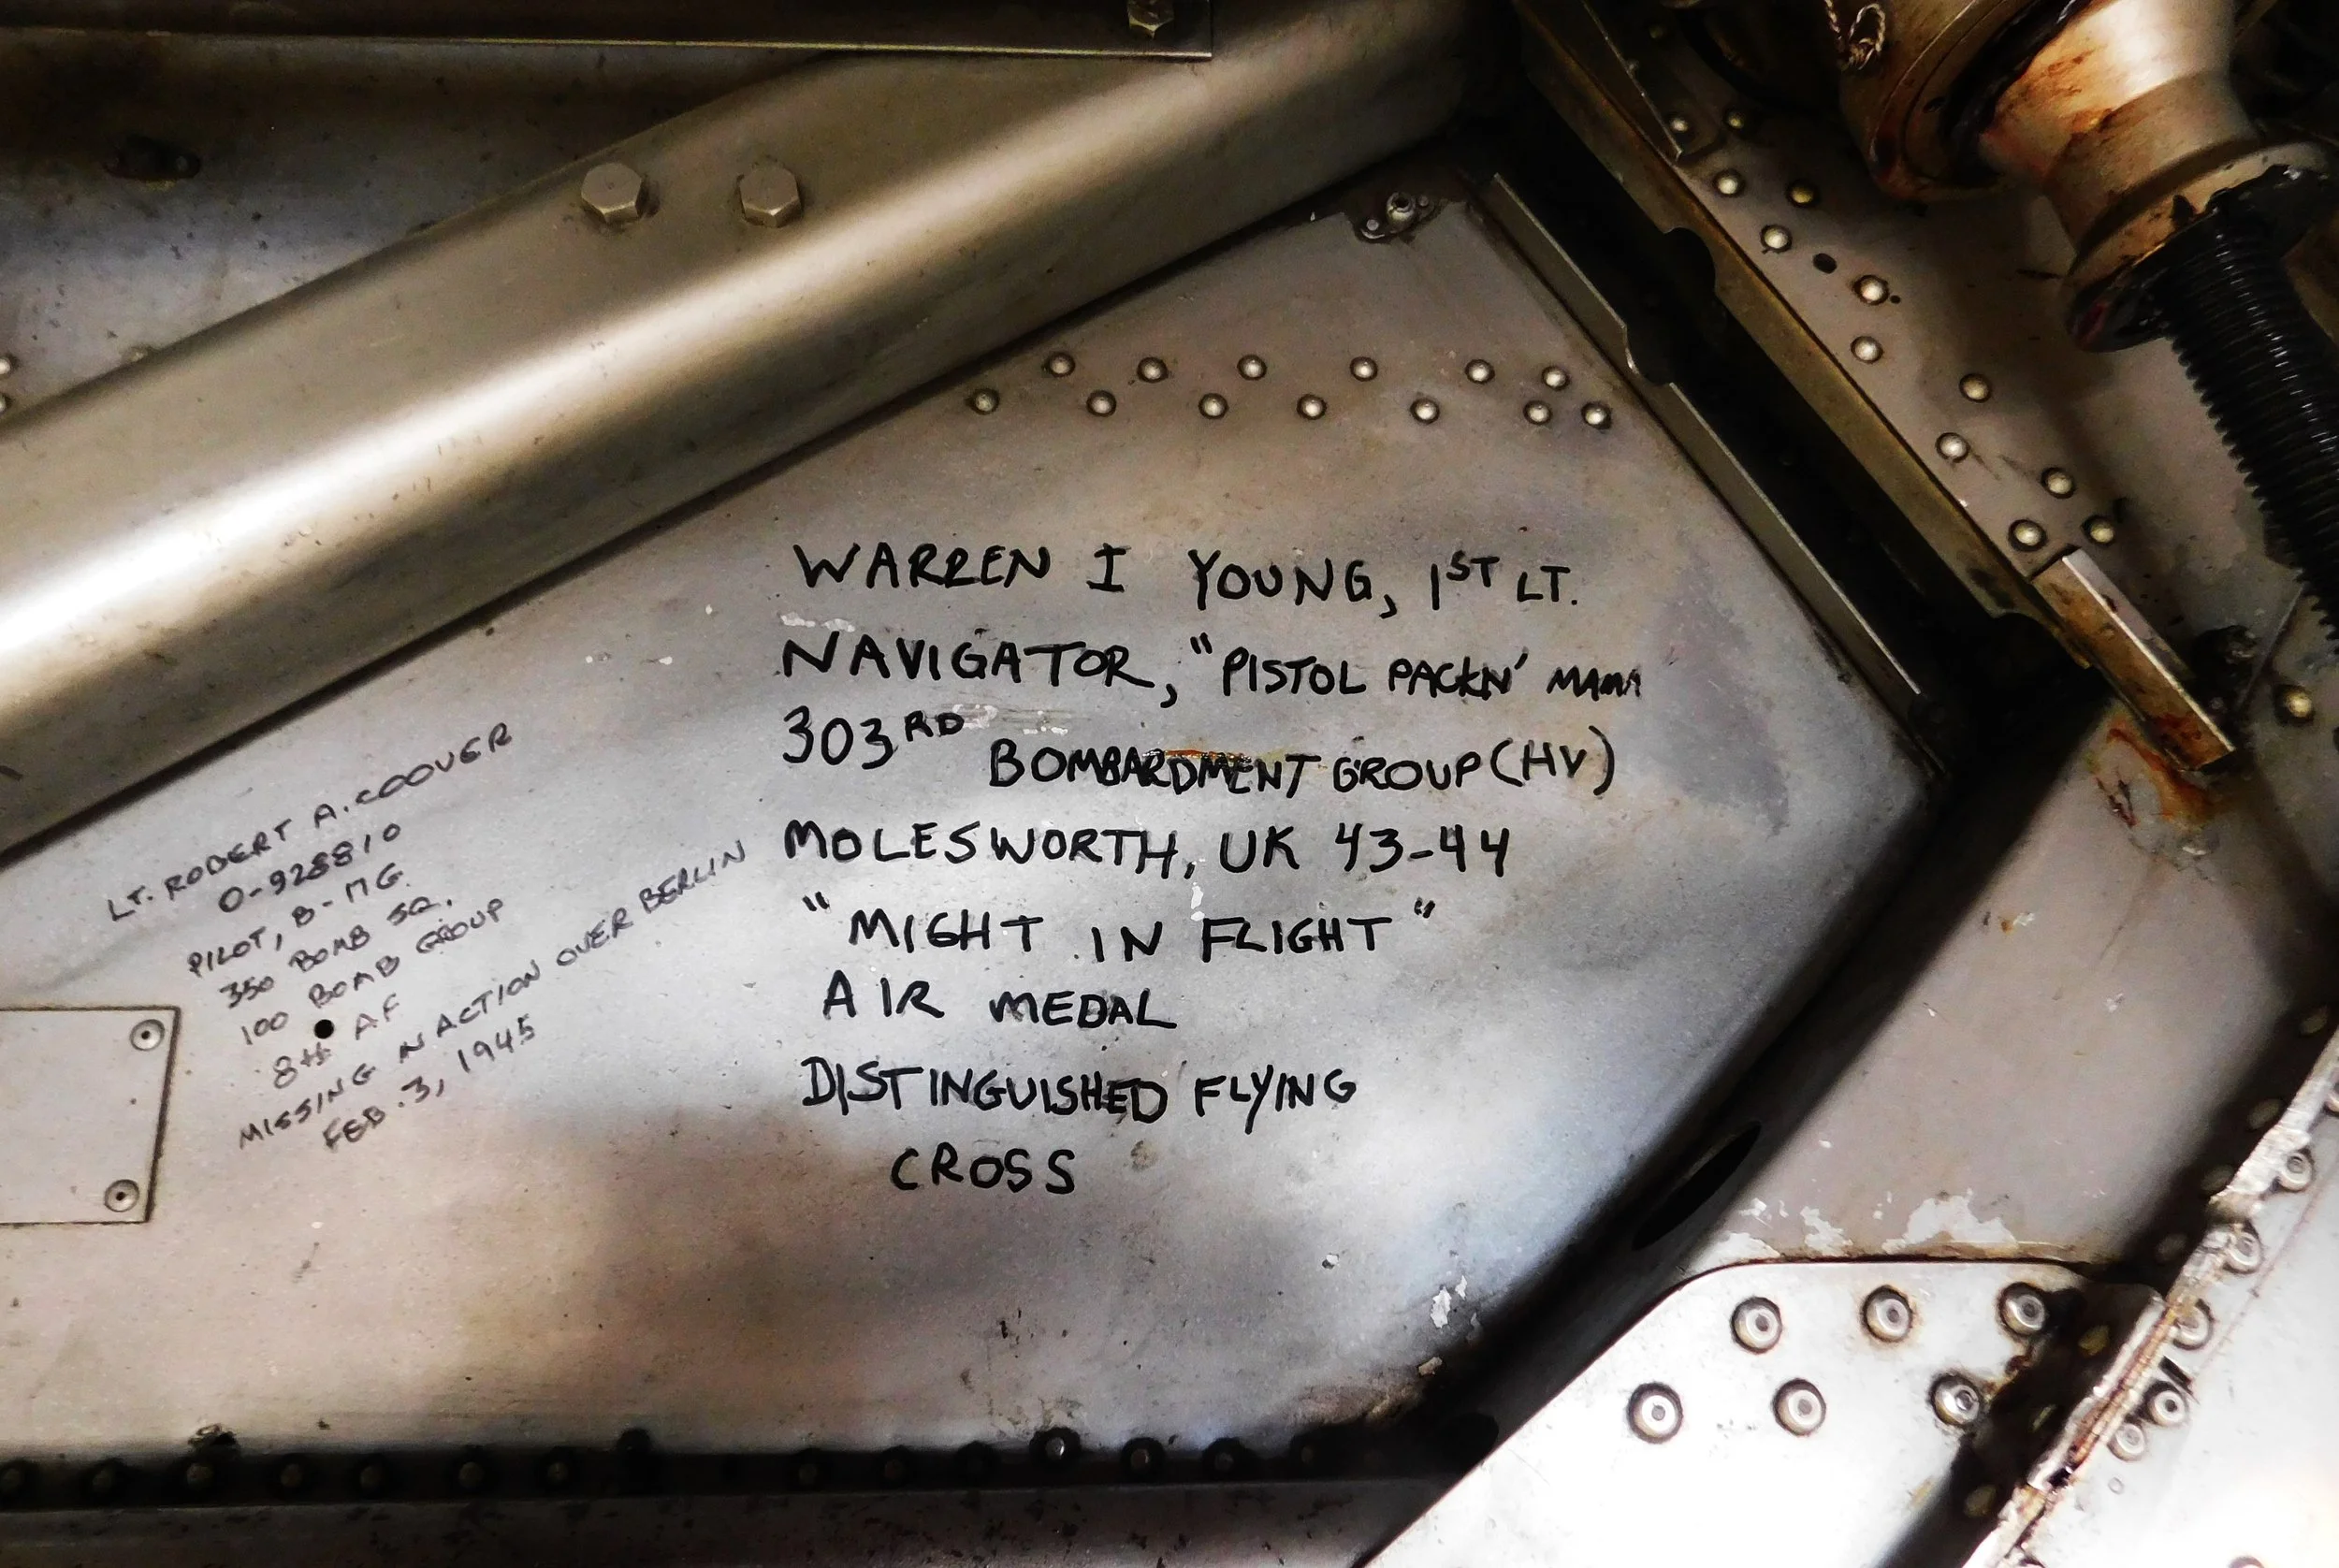 WARREN I YOUNG, 1ST LT.
NAVIGATOR, "PISTOL PACKN' MAMA
303RD BOMBARDMENT GROUP (HV)
MOLESWORTH, UK 43-44
"MIGHT IN FLIGHT"
AIR MEDAL
DISTINGUISHED FLYING
CROSS
LT. ROBERT A. COOVER
O-928810
PILOT, B-17G
350 BOMB SQ.
100 BOMB GROUP
8TH AF
MISSING IN ACTION OVER BERLIN
FEB. 3, 1945